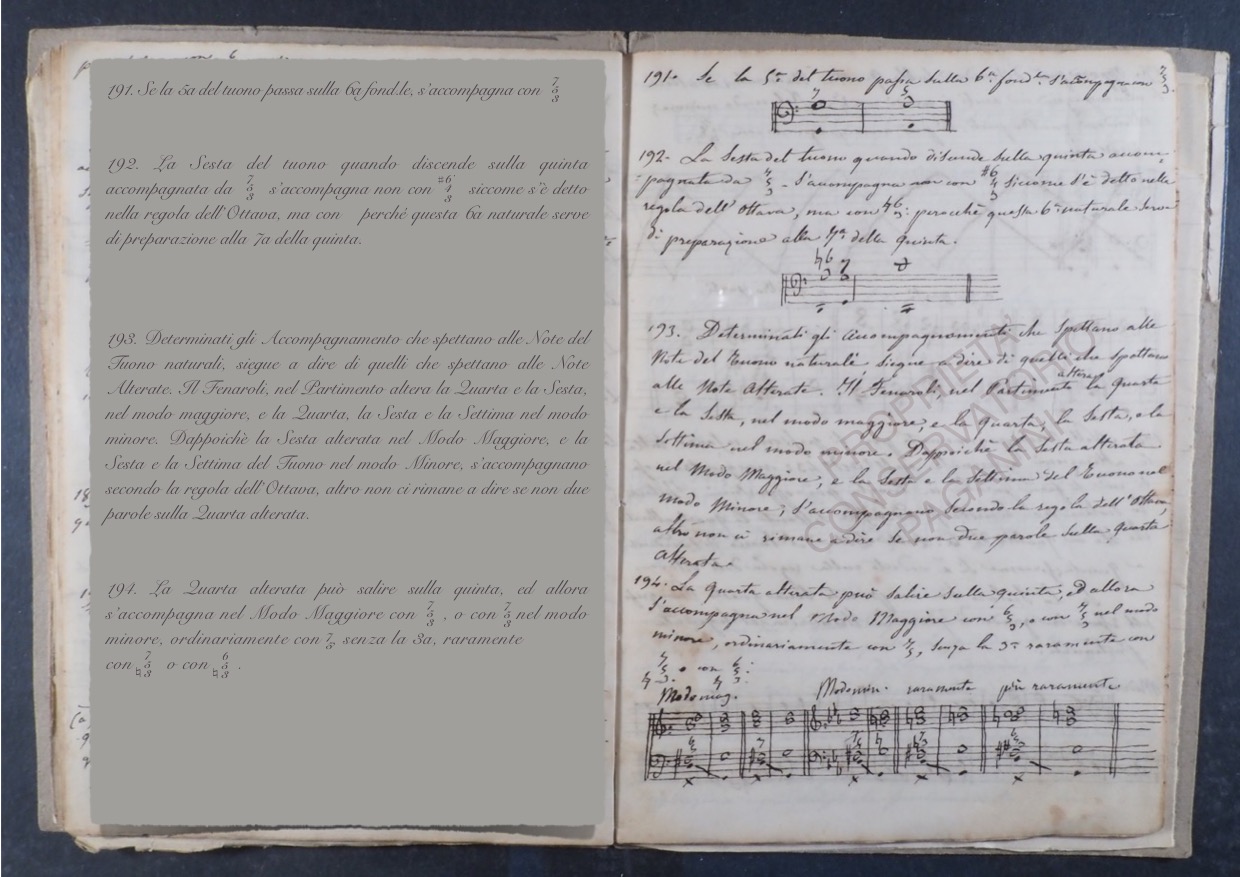 191. Se la 5a del tuono passa sulla 6a fond.le, s'accompagna con 7 5 3
192. La Sesta del tuono quando discende sulla quinta
accompagnata da 7 5 3 s'accompagna non con #6 4 3 siccome s'è detto
nella regola dell'Ottava, ma con perché questa 6a naturale serve
di preparazione alla 7a della quinta.
193. Determinati gli Accompagnamento che spettano alle Note del
Tuono naturali, siegue a dire di quelli che spettano alle Note
Alterate. Il Fenaroli, nel Partimento altera la Quarta e la Sesta,
nel modo maggiore, e la Quarta, la Sesta e la Settima nel modo
minore. Dappoichè la Sesta alterata nel Modo Maggiore, e la
Sesta e la Settima del Tuono nel modo Minore, s'accompagnano
secondo la regola dell'Ottava, altro non ci rimane a dire se non due
parole sulla Quarta alterata.
194. La Quarta alterata può salire sulla quinta, ed allora
s'accompagna nel Modo Maggiore con 7 5 3 , o con 7 5 3 nel modo
minore, ordinariamente con 7 5 senza la 3a, raramente
con ♮ 7 5 3 o con ♮ 6 5 3 .
191. Se la 5a del tuono passa sulla 6a fond.le s'accompagna con 7 5 3.
7 5
192. La Sesta del tuono quando discende sulla quinta accom-
pagnata da 7 5 3 s'accompagna non con #6 4 3 siccome s'è detto nella
regola dell'Ottava, ma con ♮6 3: perocchè questa 6a naturale serve
di preparazione alla 7a della quinta.
♮6 7
193. Determinati gli Accompagnamenti che spettano alle
Note del Tuono naturali, siegue a dire di quelli che spettano
alle Note Alterate. Il Fenaroli, nel Partimento altera la Quarta
e la Sesta, nel modo maggiore, e la Quarta, la Sesta, e la
Settima nel modo minore. Dappoichè la Sesta alterata
nel Modo Maggiore, e la Sesta e la Settima del Tuono nel
modo Minore, s'accompagnano secondo la regola dell'Ottava,
altro non ci rimane a dire se non due parole sulla Quarta
Alterata.
194. La Quarta alterata può salire sulla quinta, ed allora
s'accompagna nel Modo Maggiore con 6 5 3, o con 7 5 3 nel modo
minore, ordinariamente con 7 5, senza la 3a raramente con
♮ 7 5 3 o con ♮ 6 5 3:
Modo mag. Modo min. raramente più raramente
PROPRIETA'
CONSERVATORIO
PAGANINI